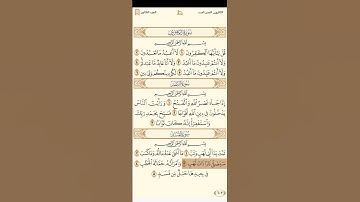 الكافرون، النصر، المسد
الجزء الثلاثون
سُورَةُ الكَافِرُونَ
بِسْمِ اللَّهِ الرَّحْمَٰنِ الرَّحِيمِ
قُلْ يَٰٓأَيُّهَا ٱلْكَٰفِرُونَ ١ لَآ أَعْبُدُ مَا تَعْبُدُونَ ٢
وَلَآ أَنتُمْ عَٰبِدُونَ مَآ أَعْبُدُ ٣ وَلَآ أَنَا۠ عَابِدٌ مَّا عَبَدتُّمْ ٤
وَلَآ أَنتُمْ عَٰبِدُونَ مَآ أَعْبُدُ ٥ لَكُمْ دِينُكُمْ وَلِىَ دِينِ ٦
سُورَةُ النَّصْرِ
بِسْمِ اللَّهِ الرَّحْمَٰنِ الرَّحِيمِ
إِذَا جَآءَ نَصْرُ ٱللَّهِ وَٱلْفَتْحُ ١ وَرَأَيْتَ ٱلنَّاسَ
يَدْخُلُونَ فِى دِينِ ٱللَّهِ أَفْوَاجًا ٢ فَسَبِّحْ بِحَمْدِ رَبِّكَ
وَٱسْتَغْفِرْهُ إِنَّهُۥ كَانَ تَوَّابًۢا ٣
سُورَةُ المَسَدِ
بِسْمِ اللَّهِ الرَّحْمَٰنِ الرَّحِيمِ
تَبَّتْ يَدَآ أَبِى لَهَبٍ وَتَبَّ ١ مَآ أَغْنَىٰ عَنْهُ مَالُهُۥ وَمَا كَسَبَ ٢
سَيَصْلَىٰ نَارًا ذَاتَ لَهَبٍ ٣ وَٱمْرَأَتُهُۥ حَمَّالَةَ ٱلْحَطَبِ ٤
فِى جِيدِهَا حَبْلٌ مِّن مَّسَدٍۭ ٥
٦٠٣